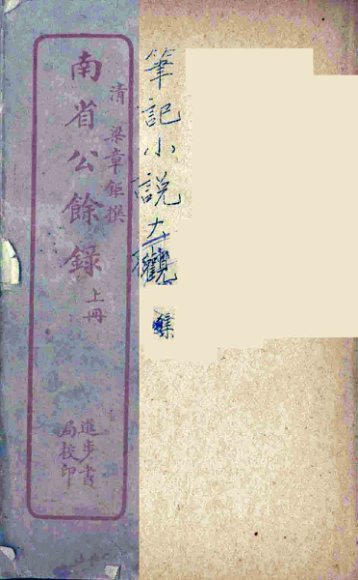 筆記小説大觀
集
清 梁章鉅撰
南省公餘錄
上冊
進步書
局校印